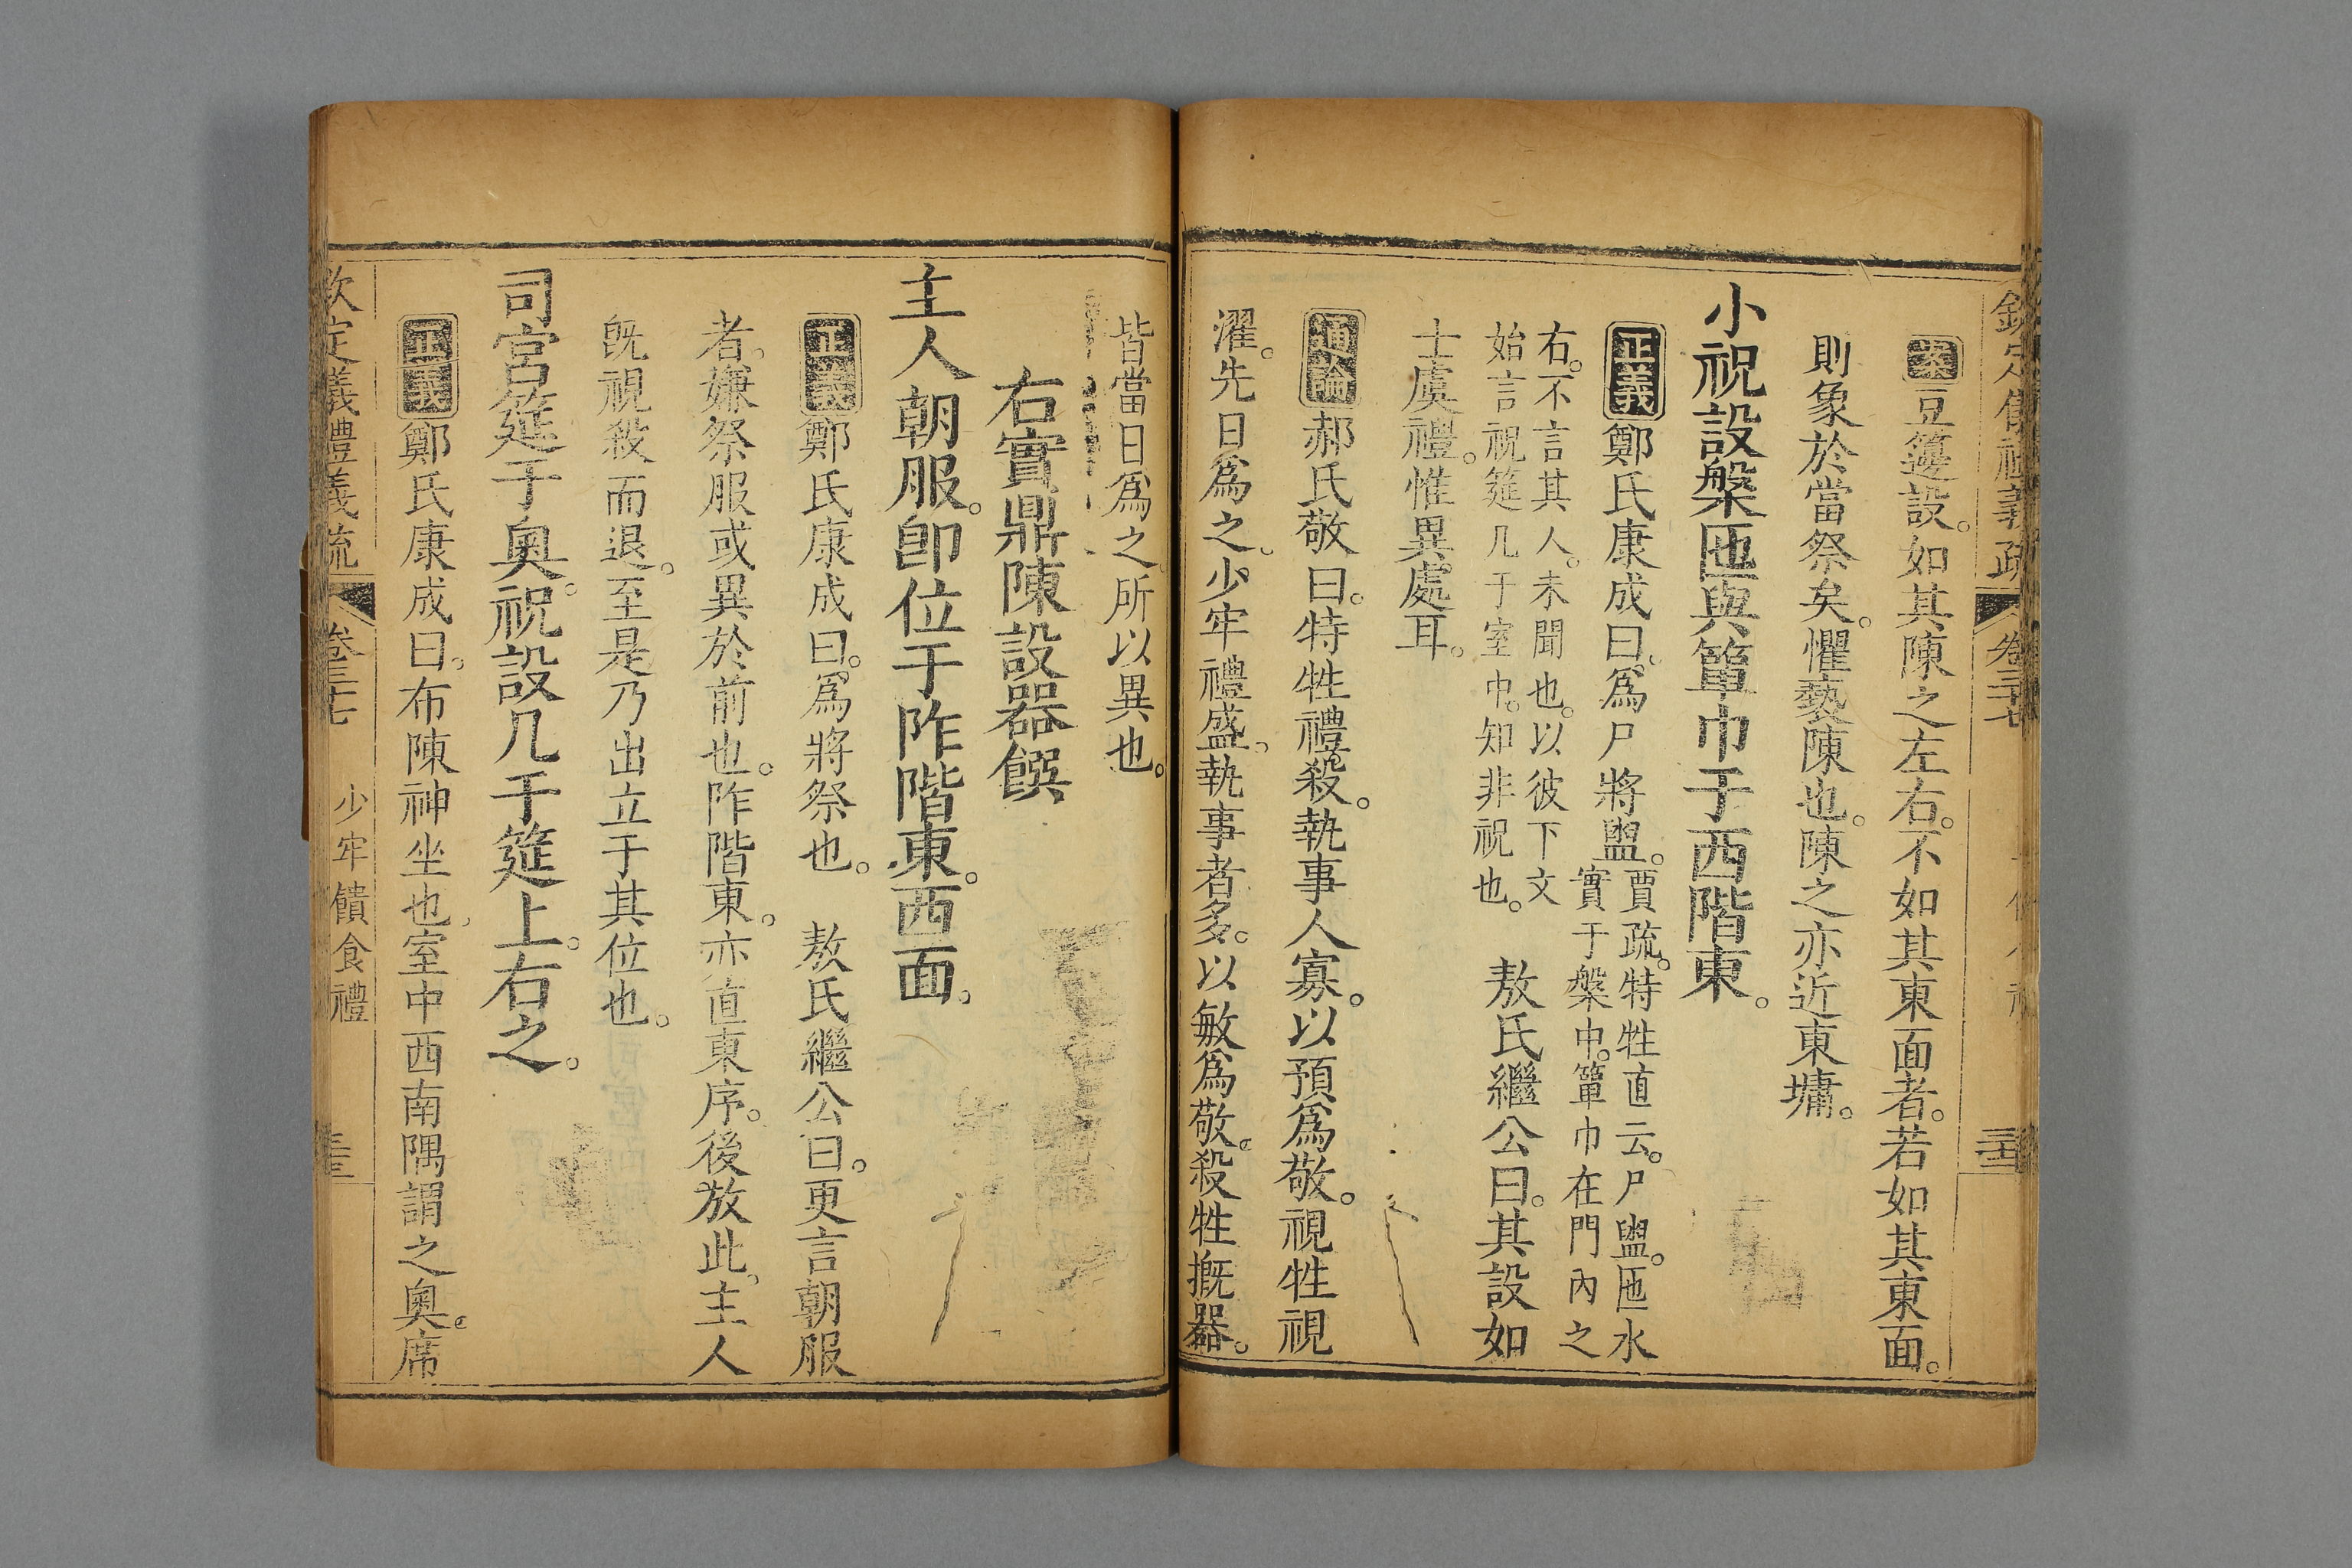 案豆籩設。如其陳之左右。不如其東面者。若如其東面。
則象於當祭矣。懼褻陳也。陳之亦近東墉。
小祝設槃匜與簞巾于西階東。
正義鄭氏康成曰。爲尸將盥。賈疏。特牲直云。尸盥。匜水
實于槃中。簞巾在門內之
右。不言其人。未聞也。以彼下文
始言祝筵几于室中。知非祝也。敖氏繼公曰。其設如
士虞禮。惟異處耳。
通論郝氏敬曰。特牲禮殺。執事人寡。以預爲敬。視牲視
濯。先日爲之。少牢禮盛。執事者多。以敏爲敬。殺牲摡器。
皆當日爲之。所以異也。
右實鼎陳設器饌
主人朝服。卽位于阼階東。西面。
正義鄭氏康成曰。爲將祭也。敖氏繼公曰。更言朝服
者。嫌祭服或異於前也。阼階東。亦直東序。後放此。主人
旣視殺而退。至是乃出立于其位也。
司宮筵于奧。祝設几于筵上。右之。
正義鄭氏康成曰。布陳神坐也。室中西南隅謂之奧。席
欽定義禮義疏 卷三十七 少牢饋食禮